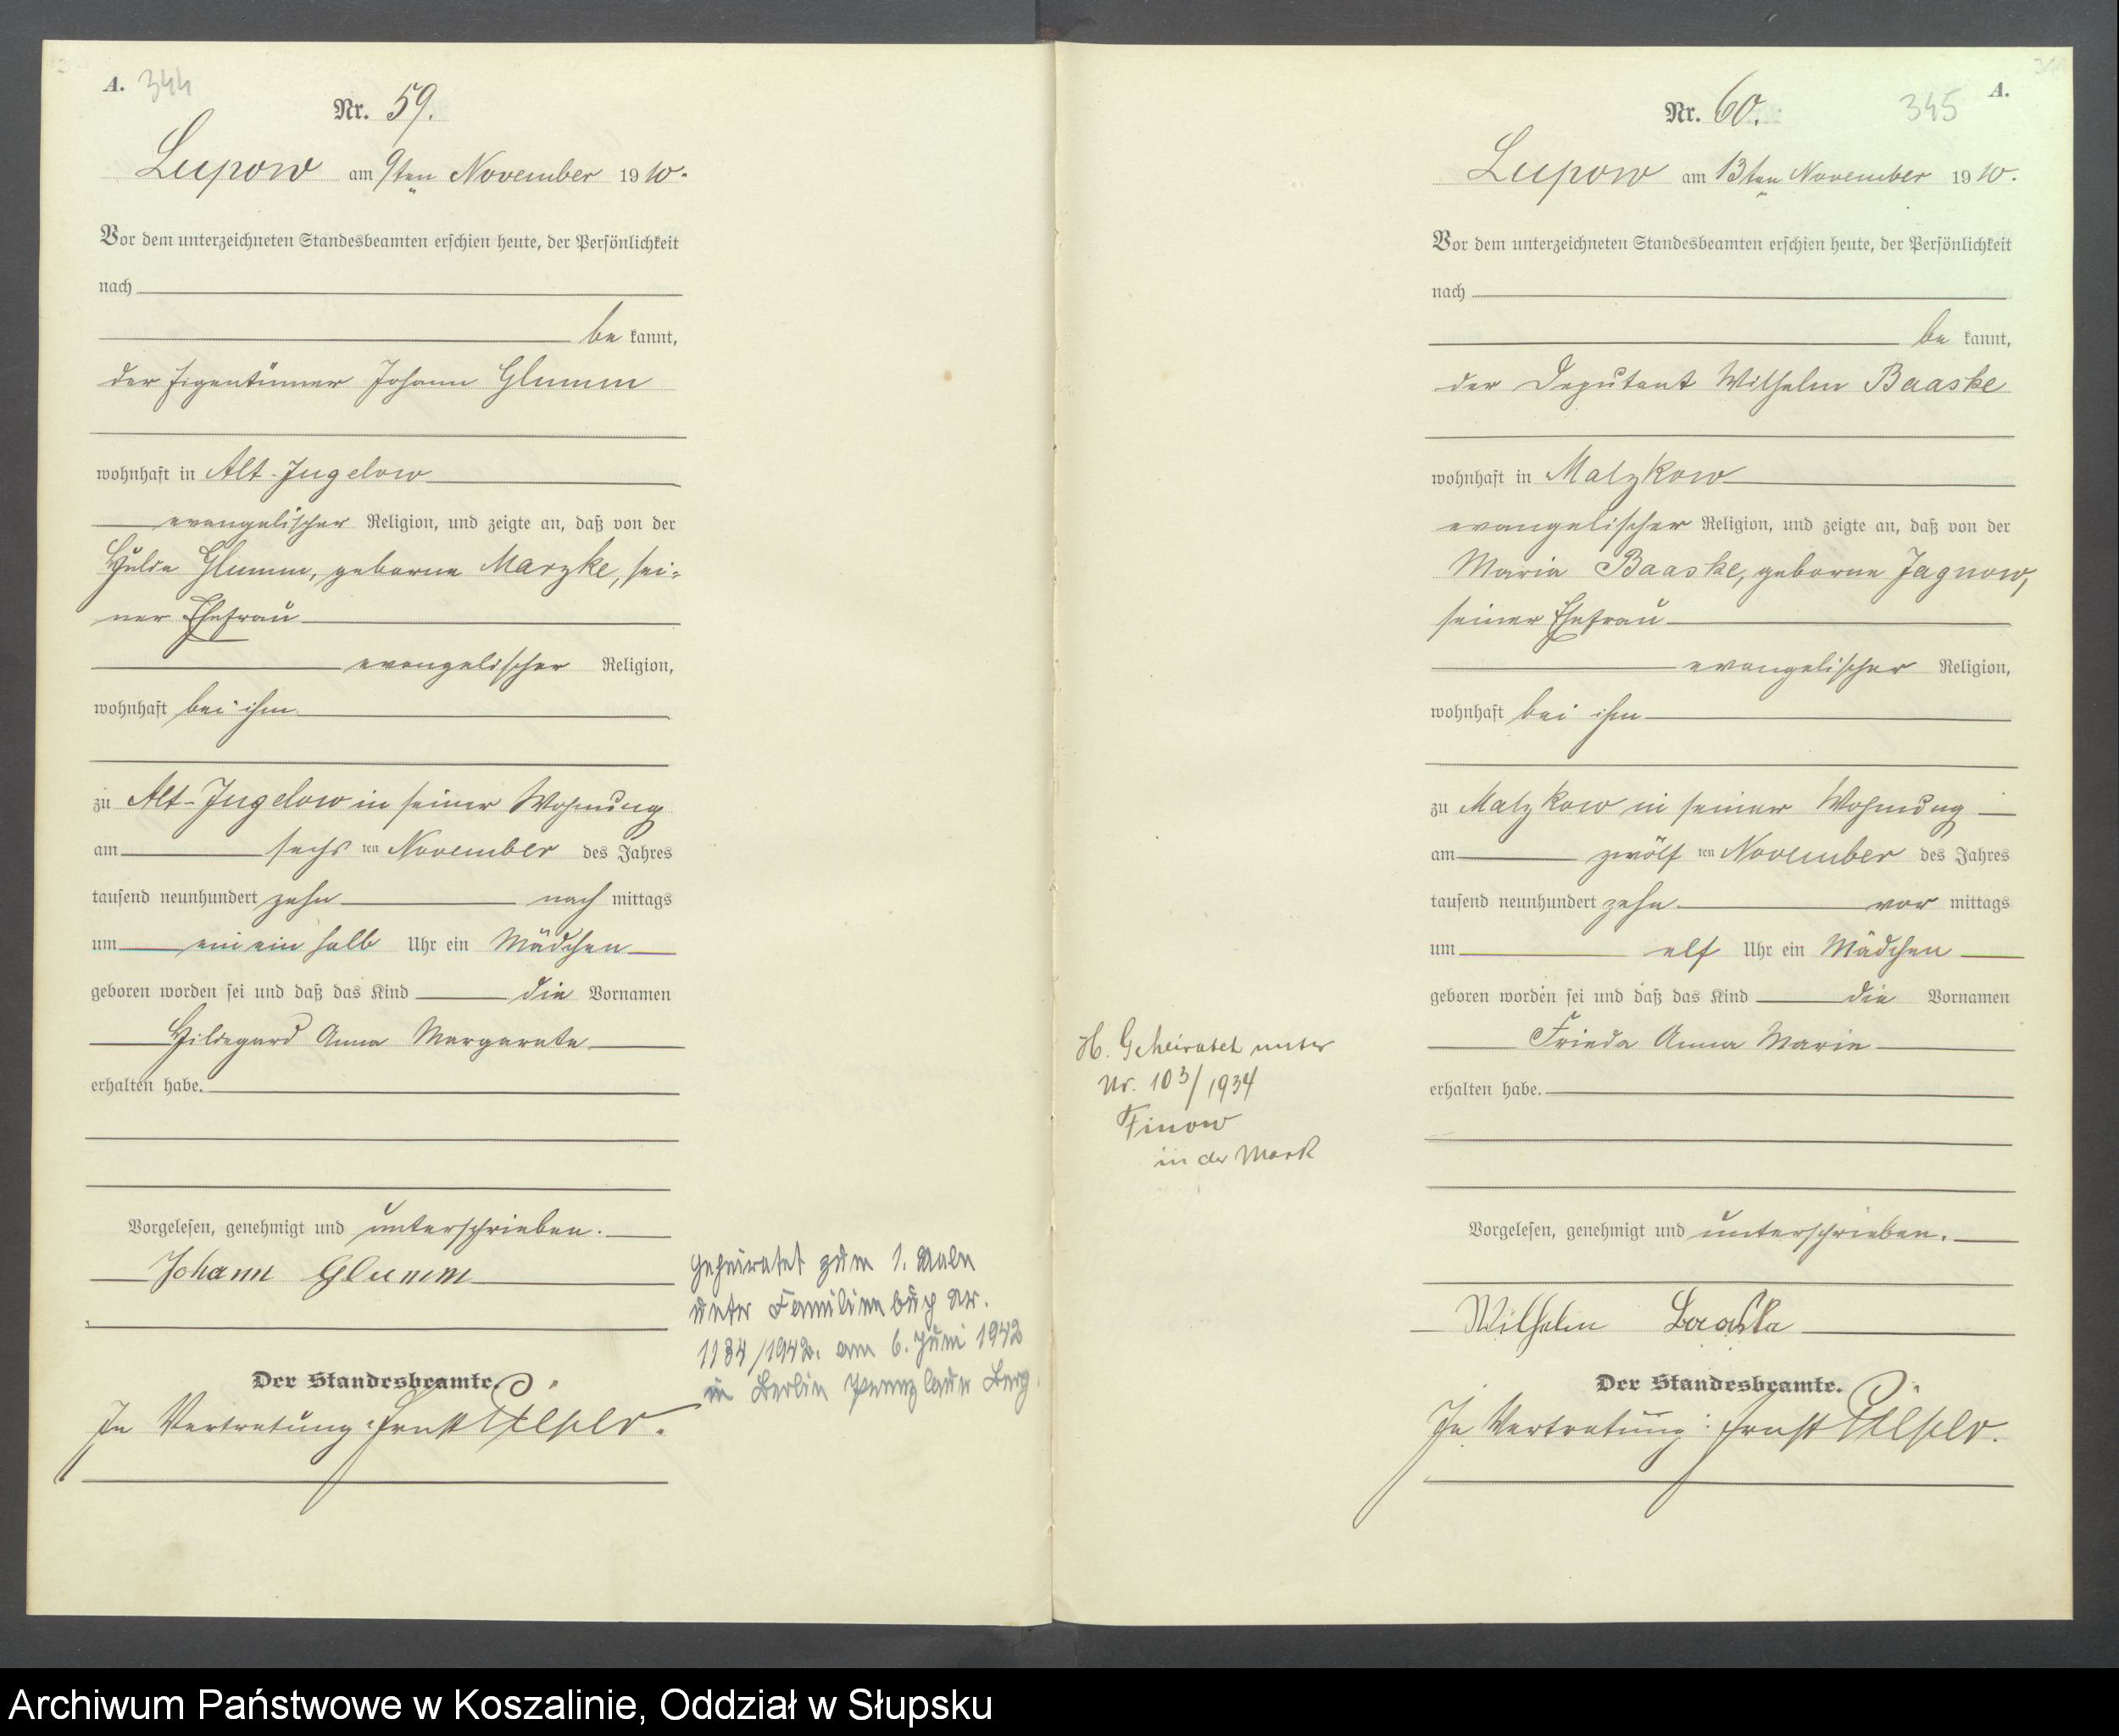 A. 344
Nr. 59.
Lupow am 9ten November 1910.
Vor dem unterzeichneten Standesbeamten erschien heute, der Persönlichkeit
nach
be kannt,
der Eigentümer Johann Glumm
wohnhaft in Alt-Jugelow
evangelischer Religion, und zeigte an, daß von der
Hulda Glumm, geborne Marzke, sei-
ner Ehefrau
evangelischer Religion,
wohnhaft bei ihm
zu Alt-Jugelow in seiner Wohnung
am sechs ten November des Jahres
tausend neunhundert zehn nach mittags
um ein ein halb Uhr ein Mädchen
geboren worden sei und daß das Kind die Vornamen
Hildegard Anna Margarete
erhalten habe.
Vorgelesen, genehmigt und unterschrieben.
Johann Glumm
Der Standesbeamte.
In Vertretung: Ernst
geheiratet zum 1. Male
unter Familienbuch Nr.
1134/1942. am 6. Juni 1942
in Berlin Prenzlauer Berg.
A.
345
Nr. 60.
Lupow am 13ten November 1910.
Vor dem unterzeichneten Standesbeamten erschien heute, der Persönlichkeit
nach
be kannt,
der Deputant Wilhelm Baaske
wohnhaft in Malzkow
evangelischer Religion, und zeigte an, daß von der
Maria Baaske, geborne Jagnow,
seiner Ehefrau
evangelischer Religion,
wohnhaft bei ihm
zu Malzkow in seiner Wohnung
am zwölf ten November des Jahres
tausend neunhundert zehn vor mittags
um elf Uhr ein Mädchen
geboren worden sei und daß das Kind die Vornamen
Frieda Anna Marie
erhalten habe.
Vorgelesen, genehmigt und unterschrieben.
Wilhelm Baaske
Der Standesbeamte.
In Vertretung: Ernst
H. Geheiratet unter
Nr. 103/1934
Finow
in der Mark
Archiwum Państwowe w Koszalinie, Oddział w Słupsku